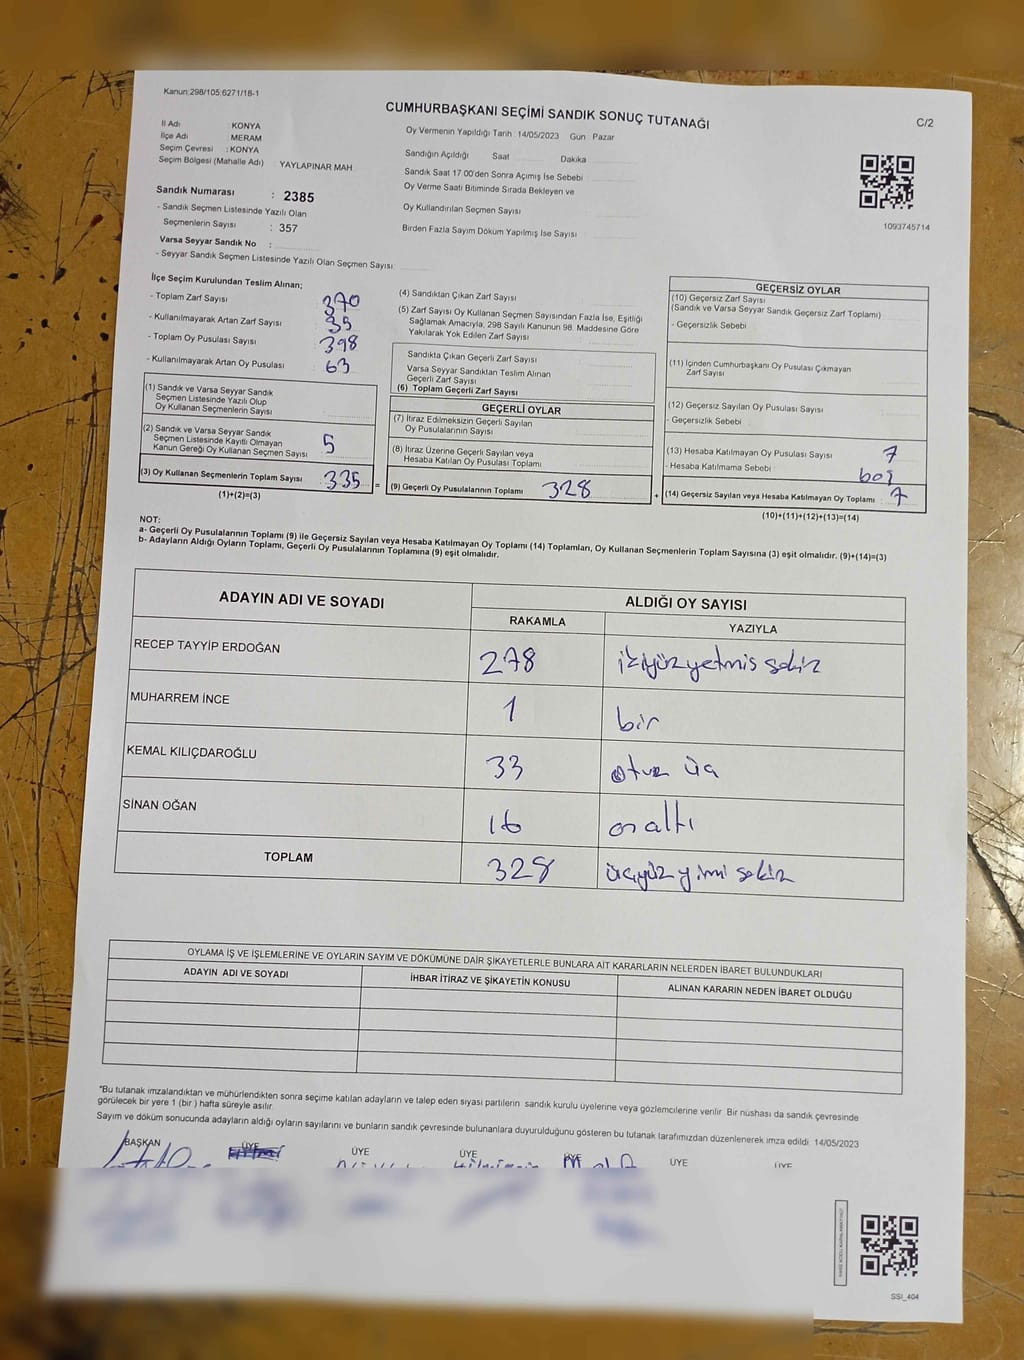 Kanun:298/105:6271/18-1
CUMHURBAŞKANI SEÇİMİ SANDIK SONUÇ TUTANAĞI
C/2
İl Adı : KONYA
İlçe Adı : MERAM
Seçim Çevresi : KONYA
Seçim Bölgesi (Mahalle Adı) YAYLAPINAR MAH
Sandık Numarası : 2385
- Sandık Seçmen Listesinde Yazılı Olan
Seçmenlerin Sayısı : 357
Varsa Seyyar Sandık No :
- Seyyar Sandık Seçmen Listesinde Yazılı Olan Seçmen Sayısı
Oy Vermenin Yapıldığı Tarih : 14/05/2023 Gün Pazar
Sandığın Açıldığı Saat Dakika
Sandık Saat 17:00'den Sonra Açımış İse Sebebi
Oy Verme Saati Bitiminde Sırada Bekleyen ve
Oy Kullandırılan Seçmen Sayısı
Birden Fazla Sayım Döküm Yapılmış İse Sayısı
1093745714
İlçe Seçim Kurulundan Teslim Alınan;
- Toplam Zarf Sayısı 370
- Kullanılmayarak Artan Zarf Sayısı 35
- Toplam Oy Pusulası Sayısı 398
- Kullanılmayarak Artan Oy Pusulası 63
(1) Sandık ve Varsa Seyyar Sandık
Seçmen Listesinde Yazılı Olup
Oy Kullanan Seçmenlerin Sayısı
(2) Sandık ve Varsa Seyyar Sandık
Seçmen Listesinde Kayıtlı Olmayan
Kanun Gereği Oy Kullanan Seçmen Sayısı 5
(3) Oy Kullanan Seçmenlerin Toplam Sayısı 335 =
(1)+(2)=(3)
(4) Sandıktan Çıkan Zarf Sayısı
(5) Zarf Sayısı Oy Kullanan Seçmen Sayısından Fazla İse, Eşitliği
Sağlamak Amacıyla, 298 Sayılı Kanunun 98. Maddesine Göre
Yakılarak Yok Edilen Zarf Sayısı
Sandıkta Çıkan Geçerli Zarf Sayısı
Varsa Seyyar Sandıktan Teslim Alınan
Geçerli Zarf Sayısı
(6) Toplam Geçerli Zarf Sayısı
GEÇERLİ OYLAR
(7) İtiraz Edilmeksizin Geçerli Sayılan
Oy Pusulalarının Sayısı
(8) İtiraz Üzerine Geçerli Sayılan veya
Hesaba Katılan Oy Pusulası Toplamı
(9) Geçerli Oy Pusulalarının Toplamı 328 +
GEÇERSİZ OYLAR
(10) Geçersiz Zarf Sayısı
(Sandık ve Varsa Seyyar Sandık Geçersiz Zarf Toplamı)
- Geçersizlik Sebebi
(11) İçinden Cumhurbaşkanı Oy Pusulası Çıkmayan
Zarf Sayısı
(12) Geçersiz Sayılan Oy Pusulası Sayısı
- Geçersizlik Sebebi
(13) Hesaba Katılmayan Oy Pusulası Sayısı 7
- Hesaba Katılmama Sebebi boş
(14) Geçersiz Sayılan veya Hesaba Katılmayan Oy Toplamı 7
(10)+(11)+(12)+(13)=(14)
NOT:
a- Geçerli Oy Pusulalarının Toplamı (9) ile Geçersiz Sayılan veya Hesaba Katılmayan Oy Toplamı (14) Toplamları, Oy Kullanan Seçmenlerin Toplam Sayısına (3) eşit olmalıdır. (9)+(14)=(3)
b- Adayların Aldığı Oyların Toplamı, Geçerli Oy Pusulalarının Toplamına (9) eşit olmalıdır.
ADAYIN ADI VE SOYADI ALDIĞI OY SAYISI
RAKAMLA YAZIYLA
RECEP TAYYİP ERDOĞAN 278 ikiyüzyetmis sekiz
MUHARREM İNCE 1 bir
KEMAL KILIÇDAROĞLU 33 otuz üç
SİNAN OĞAN 16 on altı
TOPLAM 328 üçyüz yirmi sekiz
OYLAMA İŞ VE İŞLEMLERİNE VE OYLARIN SAYIM VE DÖKÜMÜNE DAİR ŞİKAYETLERLE BUNLARA AİT KARARLARIN NELERDEN İBARET BULUNDUKLARI
ADAYIN ADI VE SOYADI İHBAR İTİRAZ VE ŞİKAYETİN KONUSU ALINAN KARARIN NEDEN İBARET OLDUĞU
"Bu tutanak imzalandıktan ve mühürlendikten sonra seçime katılan adayların ve talep eden siyasi partilerin sandık kurulu üyelerine veya gözlemcilerine verilir. Bir nüshası da sandık çevresinde
görülecek bir yere 1 (bir ) hafta süreyle asılır.
Sayım ve döküm sonucunda adayların aldığı oyların sayılarını ve bunların sandık çevresinde bulunanlara duyurulduğunu gösteren bu tutanak tarafımızdan düzenlenerek imza edildi. 14/05/2023
BAŞKAN ÜYE ÜYE ÜYE ÜYE ÜYE ÜYE
SSI_404